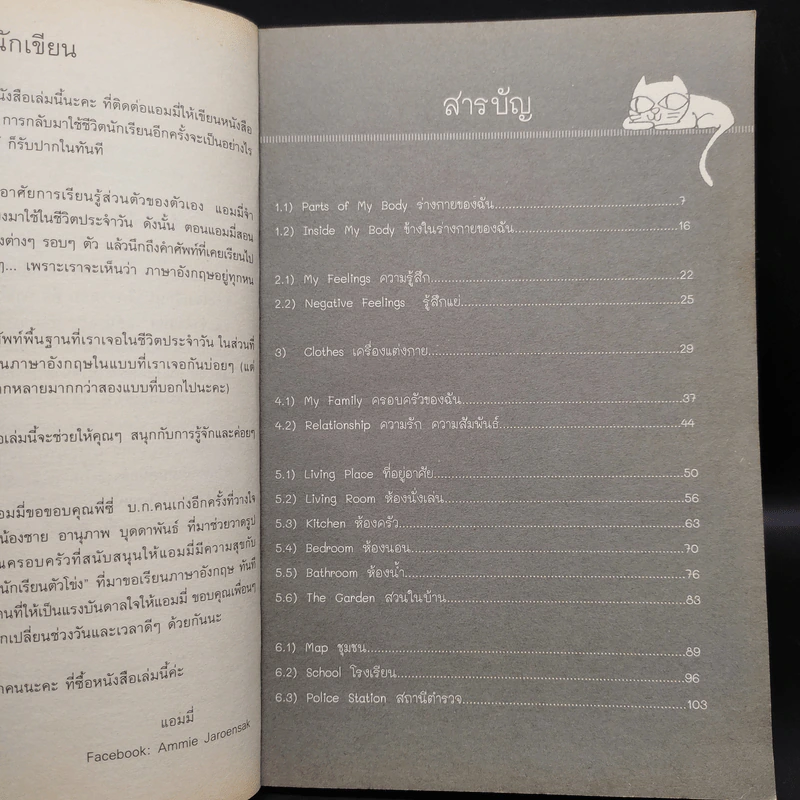 นักเขียน
นังสือเล่มนี้นะคะ ที่ติดต่อแอมมี่ให้เขียนหนังสือ
การกลับมาใช้ชีวิตนักเรียนอีกครั้งจะเป็นอย่างไร
ก็รับปากในทันที
อาศัยการเรียนรู้ส่วนตัวของตัวเอง แอมมี่จำ
มาใช้ในชีวิตประจำวัน ดังนั้น ตอนแอมมี่สอน
ต่างๆ รอบๆ ตัว แล้วนึกถึงคำศัพท์ที่เคยเรียนไป
เพราะเราจะเห็นว่า ภาษาอังกฤษอยู่ทุกหน
ศัพท์พื้นฐานที่เราเจอในชีวิตประจำวัน ในส่วนที่
นภาษาอังกฤษในแบบที่เราเจอกันบ่อยๆ (แต่
กหลายมากกว่าสองแบบที่บอกไปนะคะ)
อเล่มนี้จะช่วยให้คุณๆ สนุกกับการรู้จักและค่อยๆ
แอมมี่ขอขอบคุณพี่ซี่ บ.ก.คนเก่งอีกครั้งที่วางใจ
น้องชาย อานุภาพ บุดดาพันธ์ ที่มาช่วยวาดรูป
ครอบครัวที่สนับสนุนให้แอมมี่มีความสุขกับ
นักเรียนตัวโข่ง" ที่มาขอเรียนภาษาอังกฤษ ทันที
คนที่ให้เป็นแรงบันดาลใจให้แอมมี่ ขอบคุณเพื่อนๆ
กเปลี่ยนช่วงวันและเวลาดีๆ ด้วยกันนะ
คนนะคะ ที่ซื้อหนังสือเล่มนี้ค่ะ
แอมมี่
Facebook: Ammie Jaroensak
สารบัญ
1.1) Parts of My Body ร่างกายของฉัน 7
1.2) Inside My Body ข้างในร่างกายของฉัน 16
2.1) My Feelings ความรู้สึก 22
2.2) Negative Feelings รู้สึกแย่ 25
3) Clothes เครื่องแต่งกาย 29
4.1) My Family ครอบครัวของฉัน 37
4.2) Relationship ความรัก ความสัมพันธ์ 44
5.1) Living Place ที่อยู่อาศัย 50
5.2) Living Room ห้องนั่งเล่น 56
5.3) Kitchen ห้องครัว 63
5.4) Bedroom ห้องนอน 70
5.5) Bathroom ห้องน้ำ 76
5.6) The Garden สวนในบ้าน 83
6.1) Map ชุมชน 89
6.2) School โรงเรียน 96
6.3) Police Station สถานีตำรวจ 103